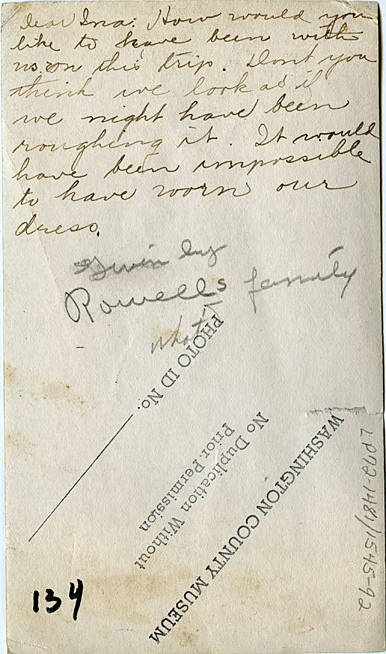 Dear Ina: How would you
like to have been with
us on this trip. Dont you
think we look as if
we might have been
roughing it. It would
have been impossible
to have worn our
dress.
Given by
Powells family
what?
PHOTO ID No.
No Duplication Without
Prior Permission
WASHINGTON COUNTY MUSEUM
134